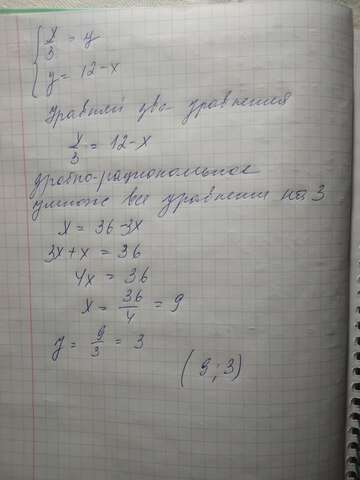 x/3 = y
y = 12 - x
Уравняй два уравнения
x/3 = 12 - x
дробно-рациональное
умножь все уравнения на 3
x = 36 - 3x
3x + x = 36
4x = 36
x = 36/4 = 9
y = 9/3 = 3
(9; 3)